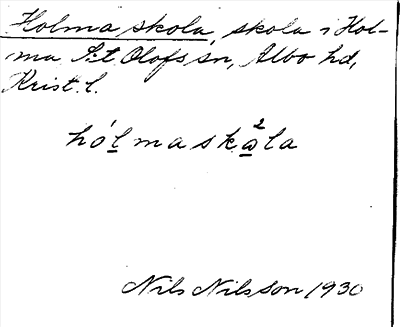 Holma skola, skola i Hol-
ma S:t Olofs sn, Albo hd,
Krist. l.
hólmaskω̲²la
Nils Nilsson 1930